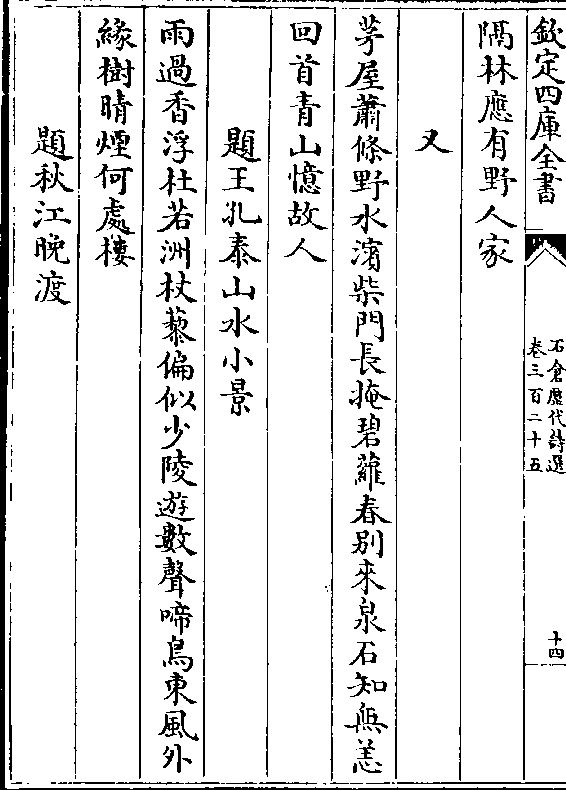 欽定四庫全書
石倉歷代詩選
卷三百二十五
十四
隔林應有野人家
又
茅屋蕭條野水濱柴門長掩碧蘿春别來泉石知無恙
回首青山憶故人
題王孔泰山水小景
雨過香浮杜若洲杖藜偏似少陵遊數聲啼鳥東風外
緣樹晴煙何處樓
題秋江晚渡